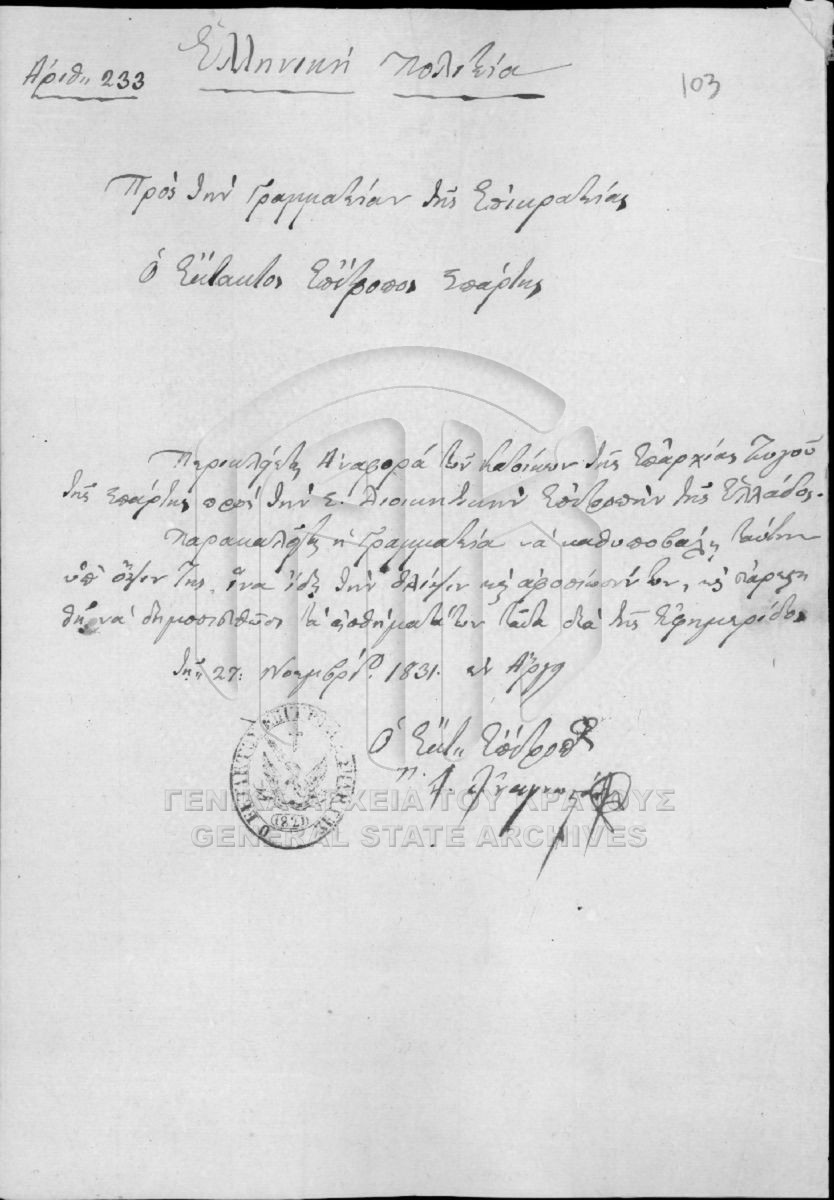 Ἀριθ. 233
Ἑλληνικὴ Πολιτεία
103
Πρὸς τὴν Γραμματείαν τῆς Ἐπικρατείας
Ὁ Ἔκτακτος Ἐπίτροπος Σπάρτης
Περικλείεται Ἀναφορὰ τῶν κατοίκων τῆς Ἐπαρχίας Ζυγοῦ
τῆς Σπάρτης πρὸς τὴν Σ. Διοικητικὴν Ἐπιτροπὴν τῆς Ἑλλάδος.
Παρακαλεῖται ἡ Γραμματεία νὰ καθυποβάλῃ ταύτην
ὑπ' ὄψιν της, ἵνα ἴδῃ τὴν θλίψιν καὶ ἀφοσίωσίν των, καὶ
νὰ δημοσιευθῶσι τὰ αἰσθήματά των ταῦτα διὰ τῆς Ἐφημερίδος
τῇ 27: Νοεμβρίου 1831. ἐν Ἄργει
Ὁ Ἔκτ. Ἐπίτροπος
1821
ΓΕΝΙΚΑ ΑΡΧΕΙΑ ΤΟΥ ΚΡΑΤΟΥΣ
GENERAL STATE ARCHIVES